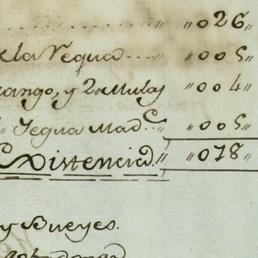 "026"
la Yegua "005"
ango, y 2 Mulas "004"
Yegua Mad.e "005"
Existencia. "018"
y Bueyes.